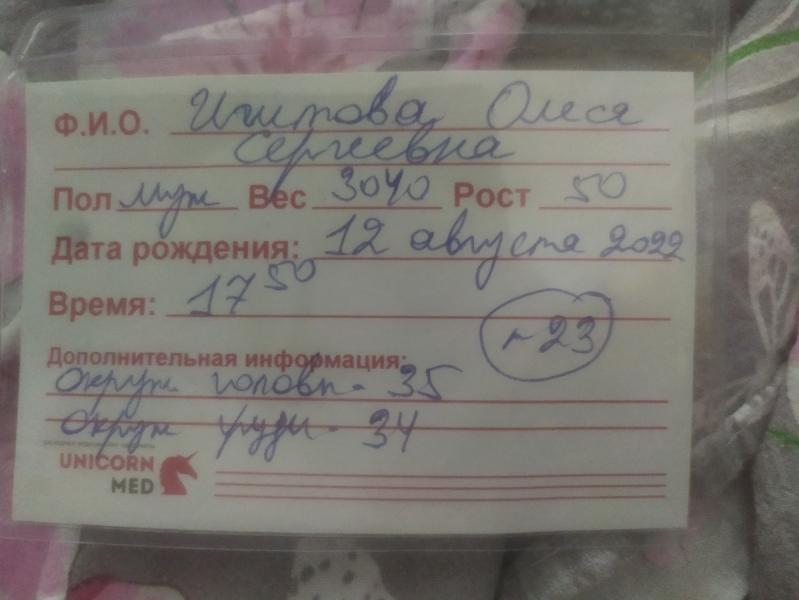 Ф.И.О. Игитова Олеся
Сергеевна
Пол муж Вес 3040 Рост 50
Дата рождения: 12 августа 2022
Время: 17 50
23
Дополнительная информация:
окруж головы - 35
окруж груди - 34
UNICORN
MED